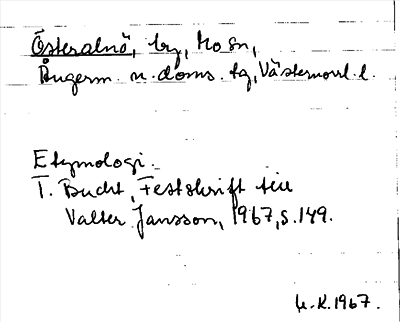 Österalnö, by, Mo sn,
Ångerm. n. doms. tg, Västernorrl. l.
Etymologi.
T. Bucht, Festskrift till
Valter Jansson, 1967, s. 149.
U.K. 1967.